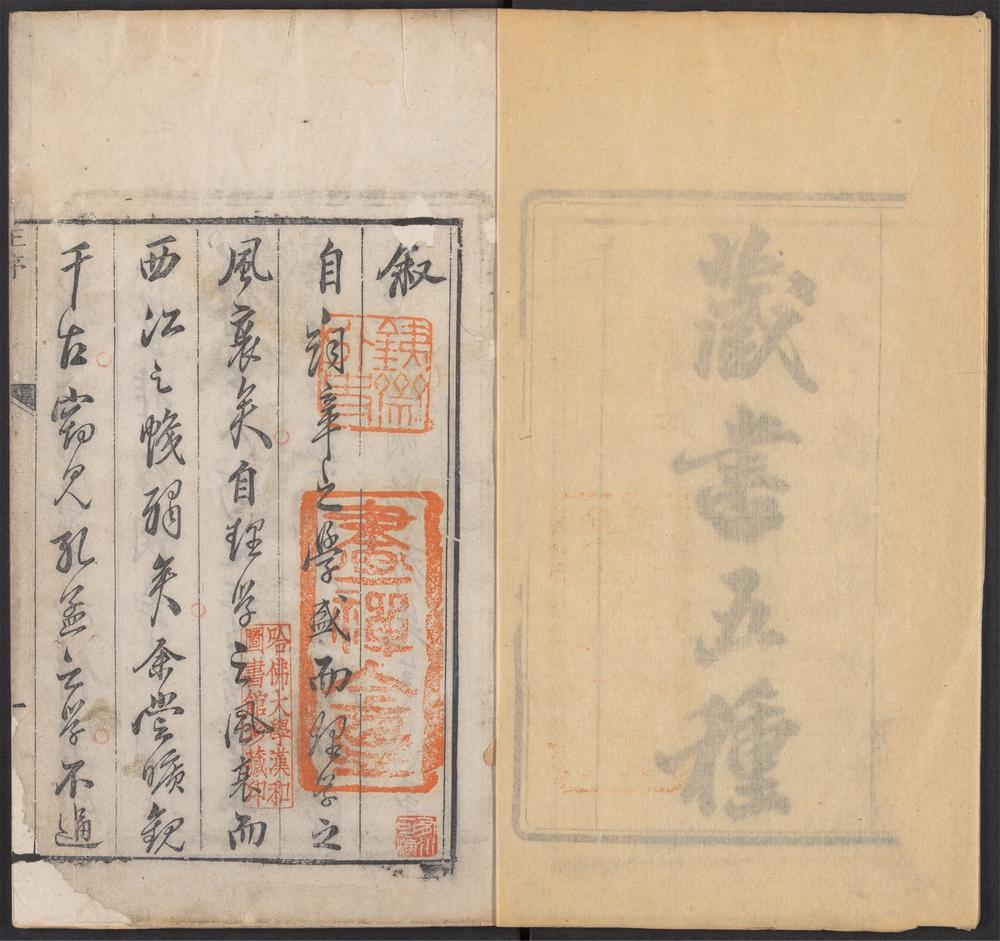 藏書五種
叙
自詞章之學盛而理学之
風衰矣自理学之風衰而
西江之幟弱矣余嘗曠觀
千古窃見孔孟之学不
王序
一
哈佛大學漢和
圖書館珍藏印